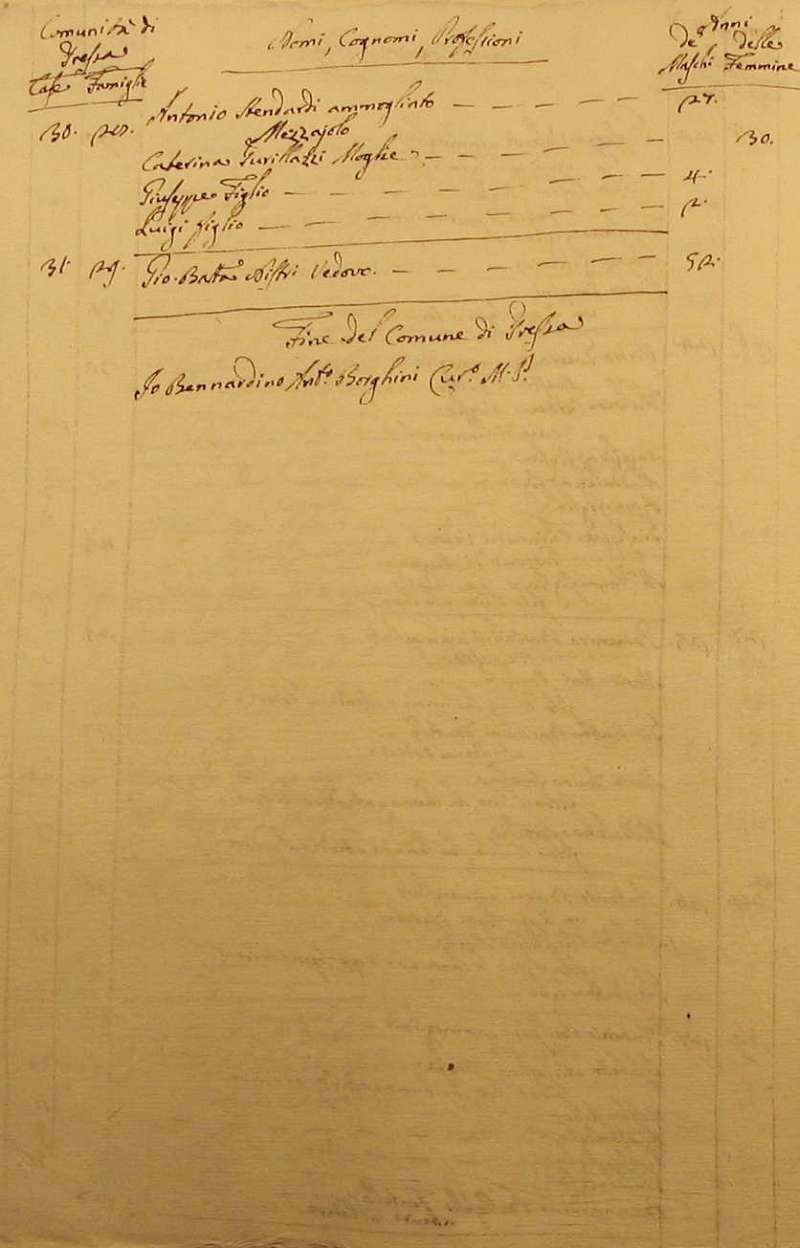 Comunità di
Tressa
Nomi, Cognomi, Professioni
Anni
De' delle
Case Famiglie
Maschi Femmine
30. 28. Antonio Stendardi ammogliato — — — — — 27.
Mezzajolo
Caterina Moglie — — — — — 30.
Giuseppe Figlio — — — — — — — 4.
Luigi figlio — — — — — — — — 2.
31. 29. Gio. Batta Vedovo. — — — — — — 52.
Fine del Comune di Tressa
Io Bernardino Anto. Borghini Curo. M. P.